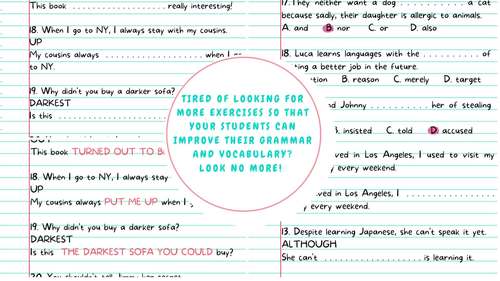 This book . . . . . . . . . . . . . . . . . . . . . . . really interesting!
18. When I go to NY, I always stay with my cousins.
UP
My cousins always . . . . . . . . . . . . . . . . . . . . . . . when I
to NY.
19. Why didn't you buy a darker sofa?
DARKEST
Is this . . . . . . . . . . . . . . . . . .
This book TURNED OUT TO
18. When I go to NY, I always stay
UP
My cousins always PUT ME UP when I
19. Why didn't you buy a darker sofa?
DARKEST
Is this THE DARKEST SOFA YOU COULD buy?
TIRED OF LOOKING FOR
MORE EXERCISES SO THAT
YOUR STUDENTS CAN
IMPROVE THEIR GRAMMAR
AND VOCABULARY?
LOOK NO MORE!
17. They neither want a dog . . . . . . . . . . a cat
because sadly, their daughter is allergic to animals.
A. and B. nor C. or D. also
18. Luca learns languages with the . . . . . . . . . . of
a better job in the future.
B. reason C. merely D. target
nd Johnny . . . . . . . . . . her of stealing
B. insisted C. told D. accused
ved in Los Angeles, I used to visit my
y every weekend.
ved in Los Angeles, I . . . . . . . . . . . . . . . . . .
y every weekend.
13. Despite learning Japanese, she can't speak it yet.
ALTHOUGH
She can't . . . . . . . . . . . . . . . . . . . . . . . is learning it.